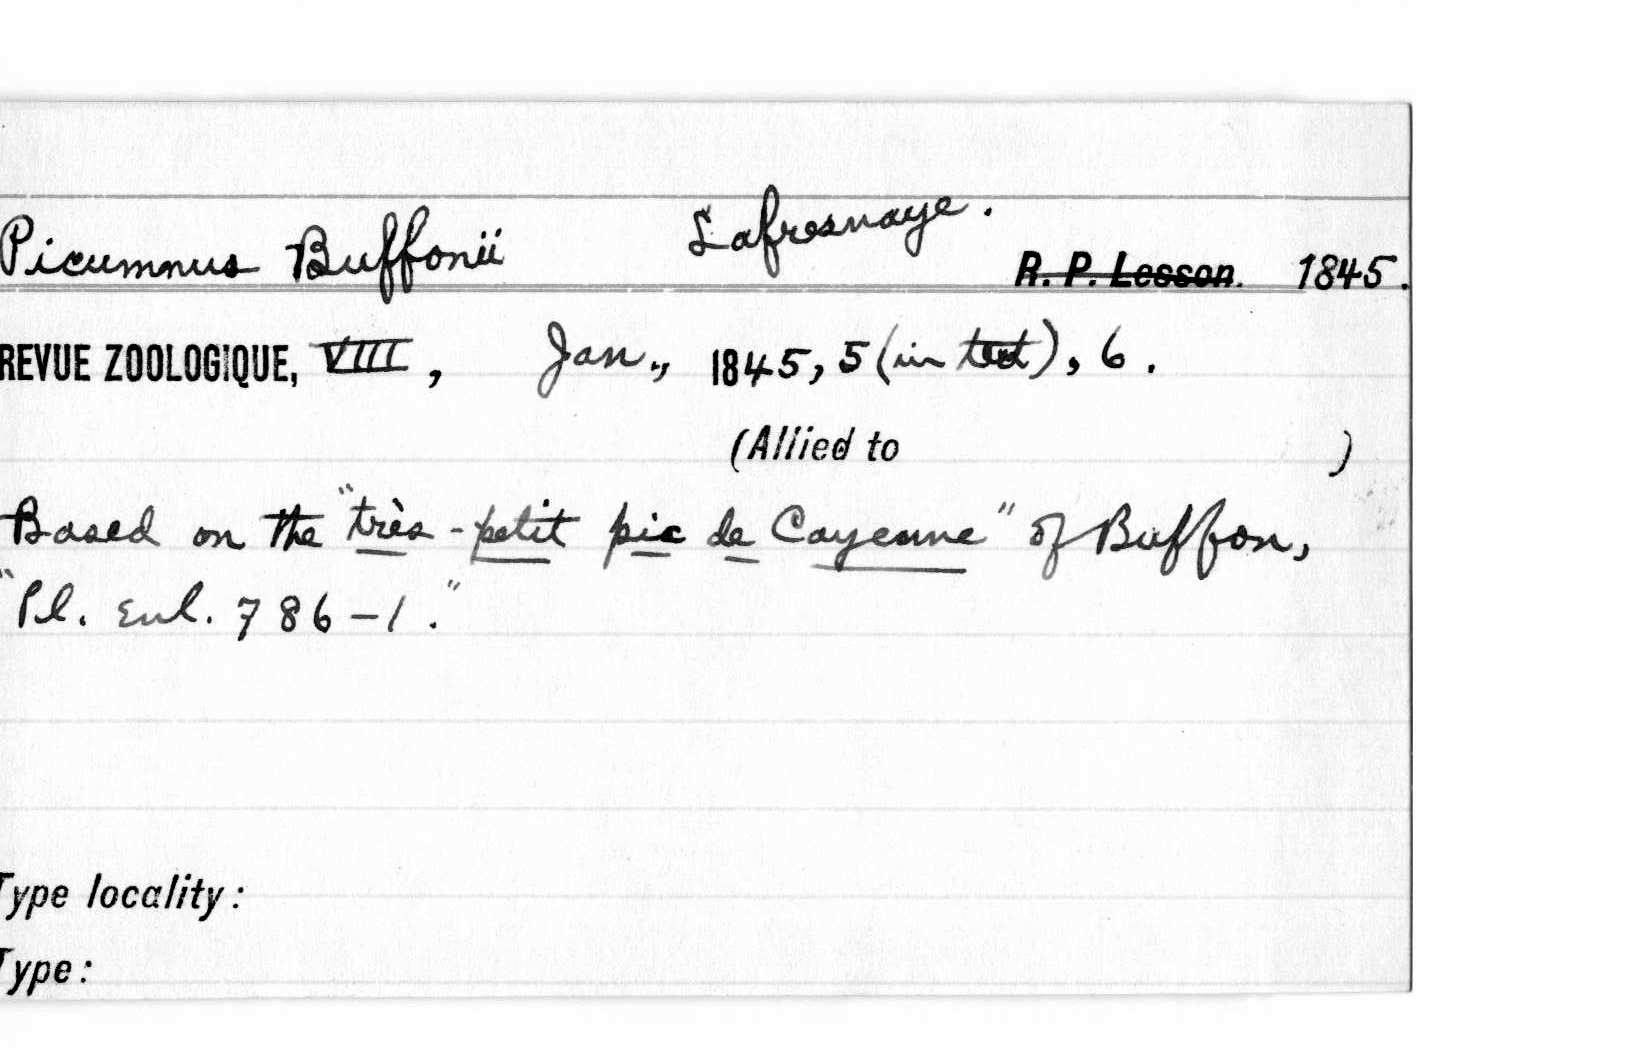 Picumnus Buffonii Lafresnaye.
R. P. Lesson. 1845.
REVUE ZOOLOGIQUE, VIII, Jan., 1845, 5 (in text), 6.
(Allied to )
Based on the "très-petit pic de Cayenne" of Buffon,
"Pl. Enl. 786-1."
Type locality:
Type: